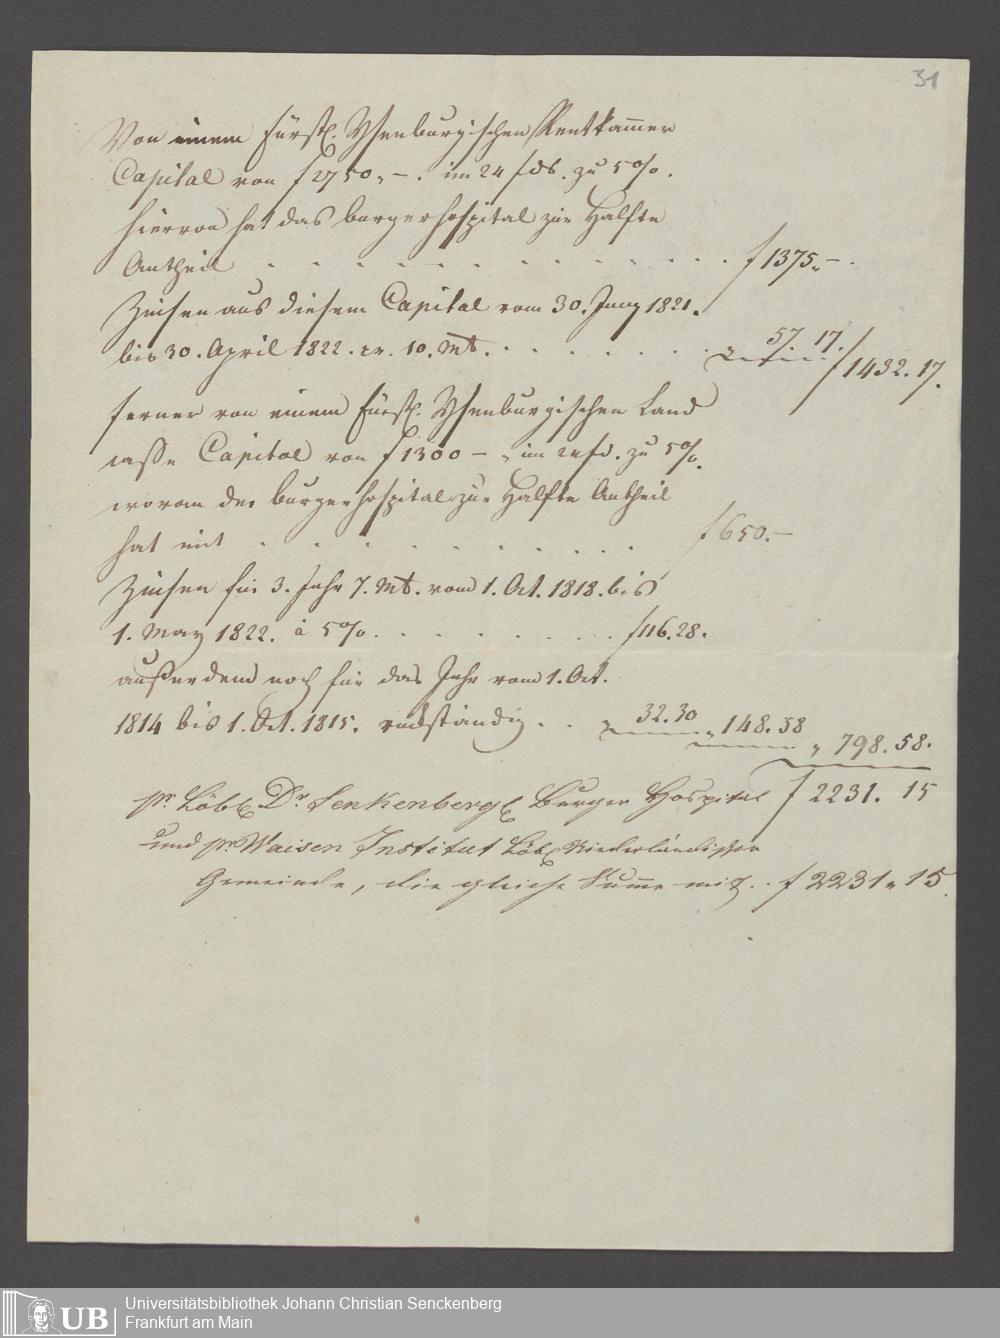 31
Von einem Fürstl. Ysenburgischen Rentkammer
Capital von f 2750„ –. im 24 f ds. zu 5%.
hiervon hat das burgerhospital zur Halfte
Antheil . . . . . . . . . . . . f 1375„ –.
Zinsen aus diesem Capital vom 30. Juny 1821.
bis 30. April 1822. 10. Mt. . . . . . . . „ 57. 17. f 1432. 17.
ferner von einem Fürstl. Ysenburgischen Land
casse Capital von f 1300 – „ im zu 5%.
woran das burgerhospital zur Halfte Antheil
hat mit . . . . . . . . . . f 650. –
Zinsen für 3. Jahr 7. Mt. vom 1. Oct. 1818. bis
1. May 1822. à 5%. . . . . . . . . f 116. 28.
außerdem noch für das Jahr vom 1. Oct.
1814 bis 1. Oct. 1815. rückständig. . . „ 32. 30 „ 148. 58
„ 798. 58.
pr. Löbl. Dr. Senkenbergl. Burger Hospital f 2231. 15
und pr. Waisen Institut Löbl. Niederländischer
Gemeinde, die gleiche Summe mit . . f 2231 „ 15.
UB
Universitätsbibliothek Johann Christian Senckenberg
Frankfurt am Main